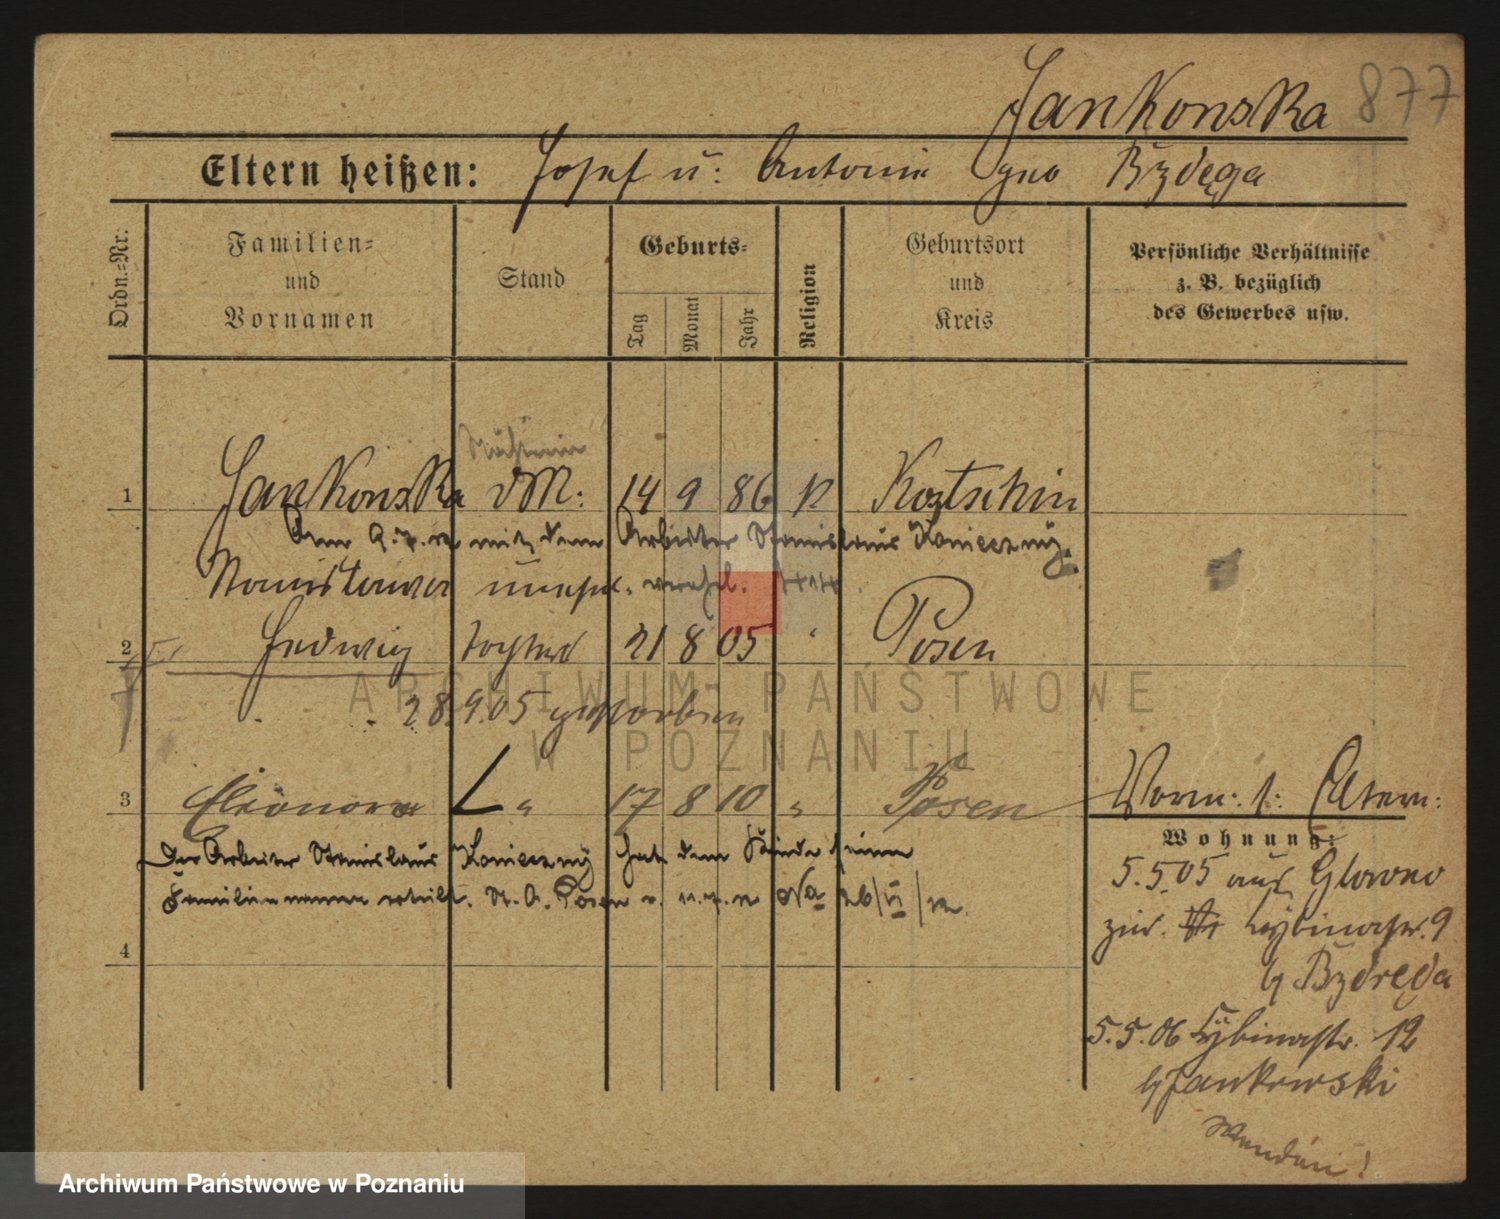 Jankowska 877
Eltern heißen: Josef u: Antonie geb Bzdęga
Ordn.-Nr.
Familien-
und
Vornamen
Stand
Geburts-
Tag
Monat
Jahr
Religion
Geburtsort
und
Kreis
Persönliche Verhältnisse
z. B. bezüglich
des Gewerbes usw.
1 Jankowska 14 9 86 K Kostschin
mit dem Arbeiter Stanislaus Konieczny
Stanislawa unehel. verehel.
2 Hedwig Tochter 21 8 05 " Posen
28.9.05 gestorben
3 Eleonora " 17 8 10 " Posen
Vorm. s. Eltern:
Der Arbeiter Stanislaus Konieczny hat dem Kinde seinen
Familiennamen erteilt. St. A. Posen
4
Wohnung:
5.5.05 aus Glowno
zur. Cybinastr. 9
b Bzdręga
5.5.06 Cybinastr. 12
b Jankowski
Wenden!
ARCHIWUM PAŃSTWOWE
W POZNANIU
Archiwum Państwowe w Poznaniu